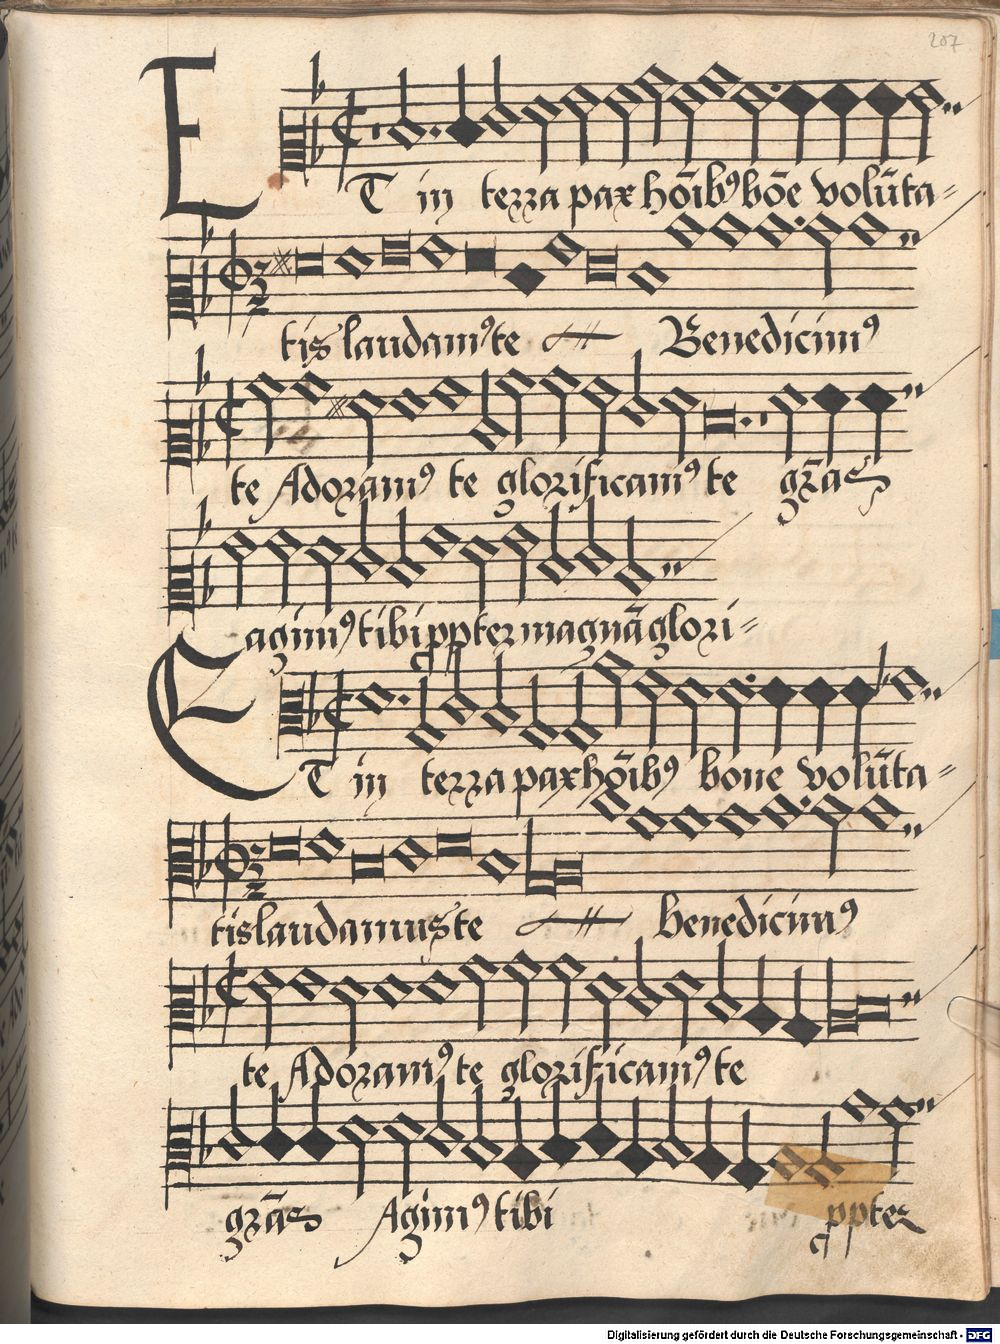 207
ET in terra pax hōibꝰ bōe volūta=
tis laudamꝰ te Benedicimꝰ
te Adoramꝰ te glorificamꝰ te gr̄as
agimꝰ tibi ꝓpter magnā glori=
ET in terra pax hōibꝰ bone volūta=
tis laudamus te benedicimꝰ
te Adoramꝰ te glorificamꝰ te
gr̄as Agimꝰ tibi ꝓpter
Digitalisierung gefördert durch die Deutsche Forschungsgemeinschaft - DFG